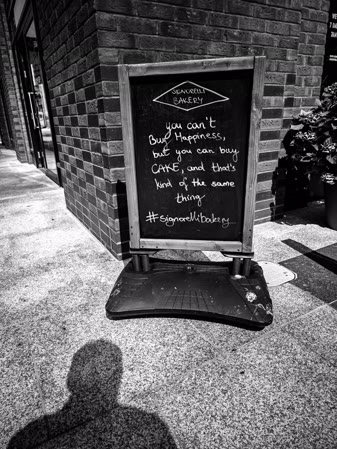 SIGNORELLI
BAKERY
you can't
Buy Happiness,
but you can buy
CAKE, and that's
kind of the same
thing
#signorellibakery